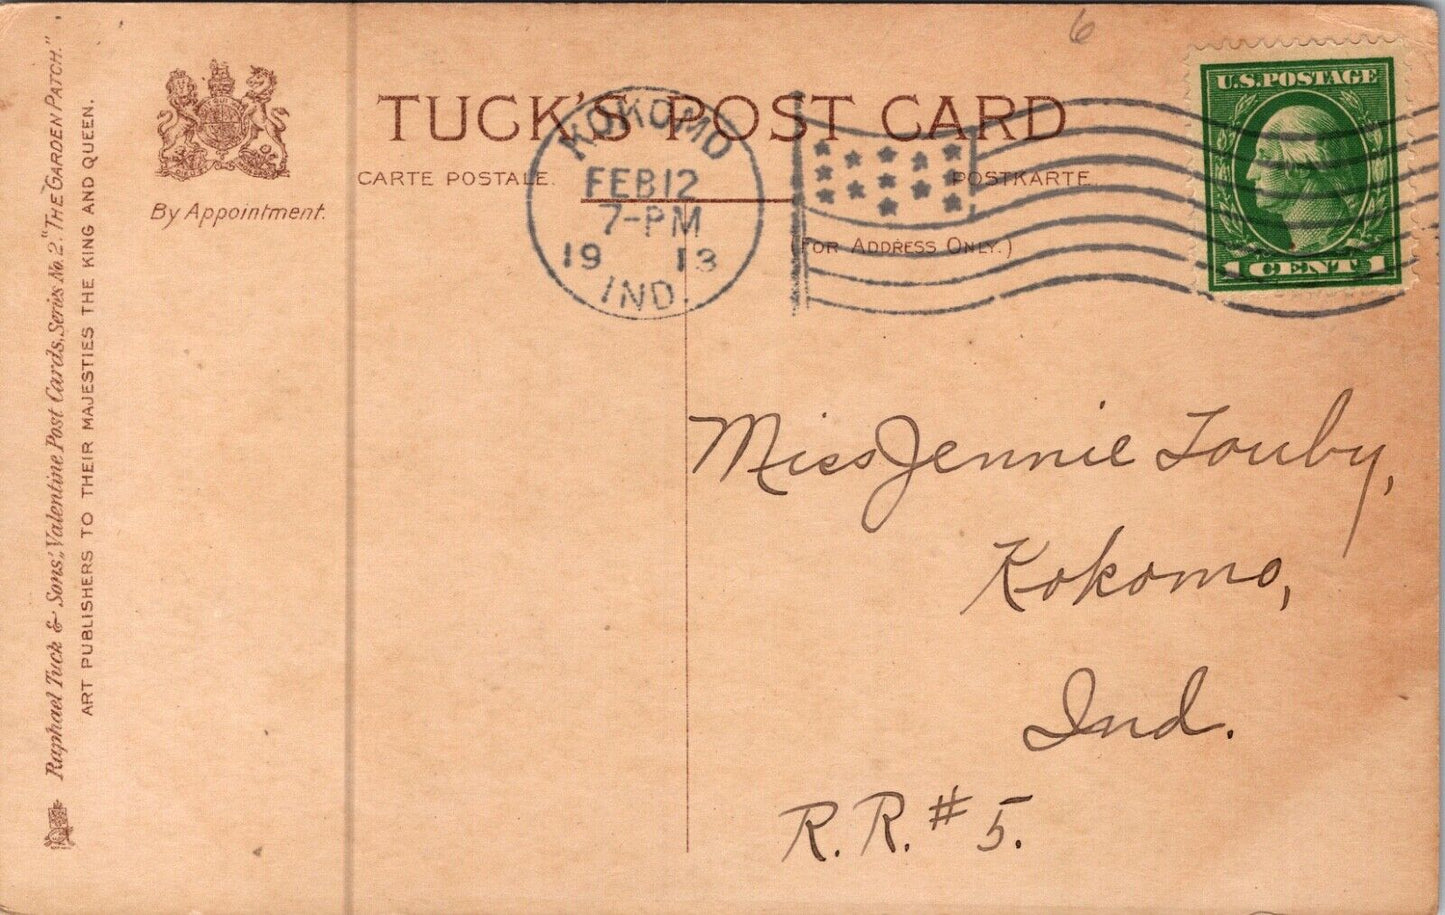 6
TUCK'S POST CARD
CARTE POSTALE.
POSTKARTE
(FOR ADDRESS ONLY.)
By Appointment.
Raphael Tuck & Sons', Valentine Post Cards, Series No. 2. "THE GARDEN PATCH."
ART PUBLISHERS TO THEIR MAJESTIES THE KING AND QUEEN.
KOKOMO
FEB 12
7-PM
19 13
IND.
U.S. POSTAGE
1 CENT 1
Miss Jennie Louby,
Kokomo,
Ind.
R. R. # 5.